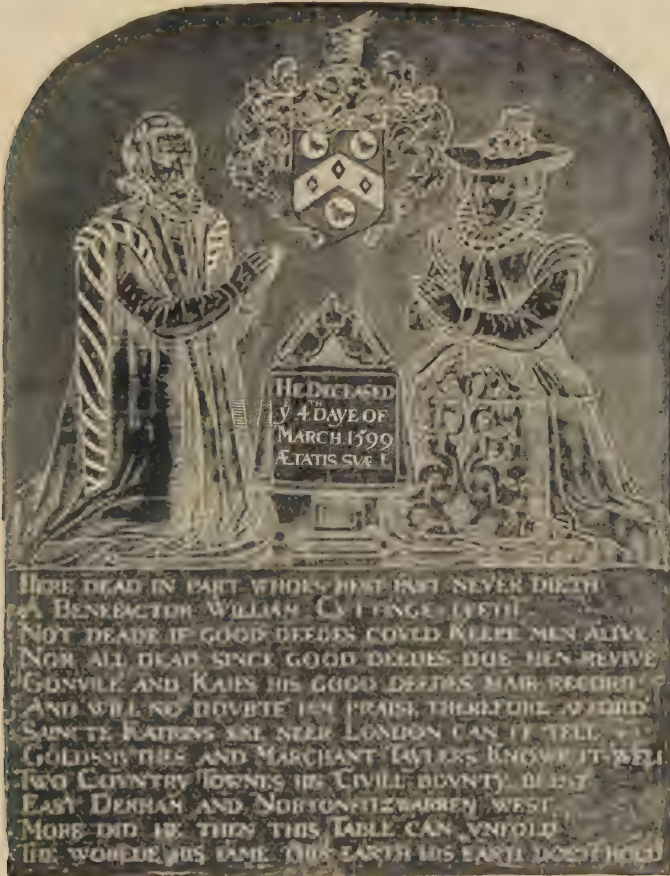 HE DECEASED
Yͤ 4TH DAYE OF
MARCH 1599
ÆTATIS SVÆ L
HERE DEAD IN PART WHOES BEST PART NEVER DIETH
A BENEFACTOR WILLIAM CVTTINGE LYETH
NOT DEADE IF GOOD DEEDES COVLD KEEPE MEN ALIVE
NOR ALL DEAD SINCE GOOD DEEDES DOE MEN REVIVE
GONVILE AND KAIES HIS GOOD DEEDES MAIE RECORD
AND WILL NO DOVBTE HIM PRAISE THEREFORE AFFORD
SAINCTE KATRINS EKE NEER LONDON CAN IT TELL
GOLDSMYTHES AND MARCHANT TAYLERS KNOWE IT WELL
TWO COVNTRY TOWNES HIS CIVILL BOVNTY BLEST
EAST DERHAM AND NORTONFITZWARREN WEST
MORE DID HE THEN THIS TABLE CAN VNFOLD
THE WORLDE HIS FAME THIS EARTH HIS EARTH DOETH HOLD